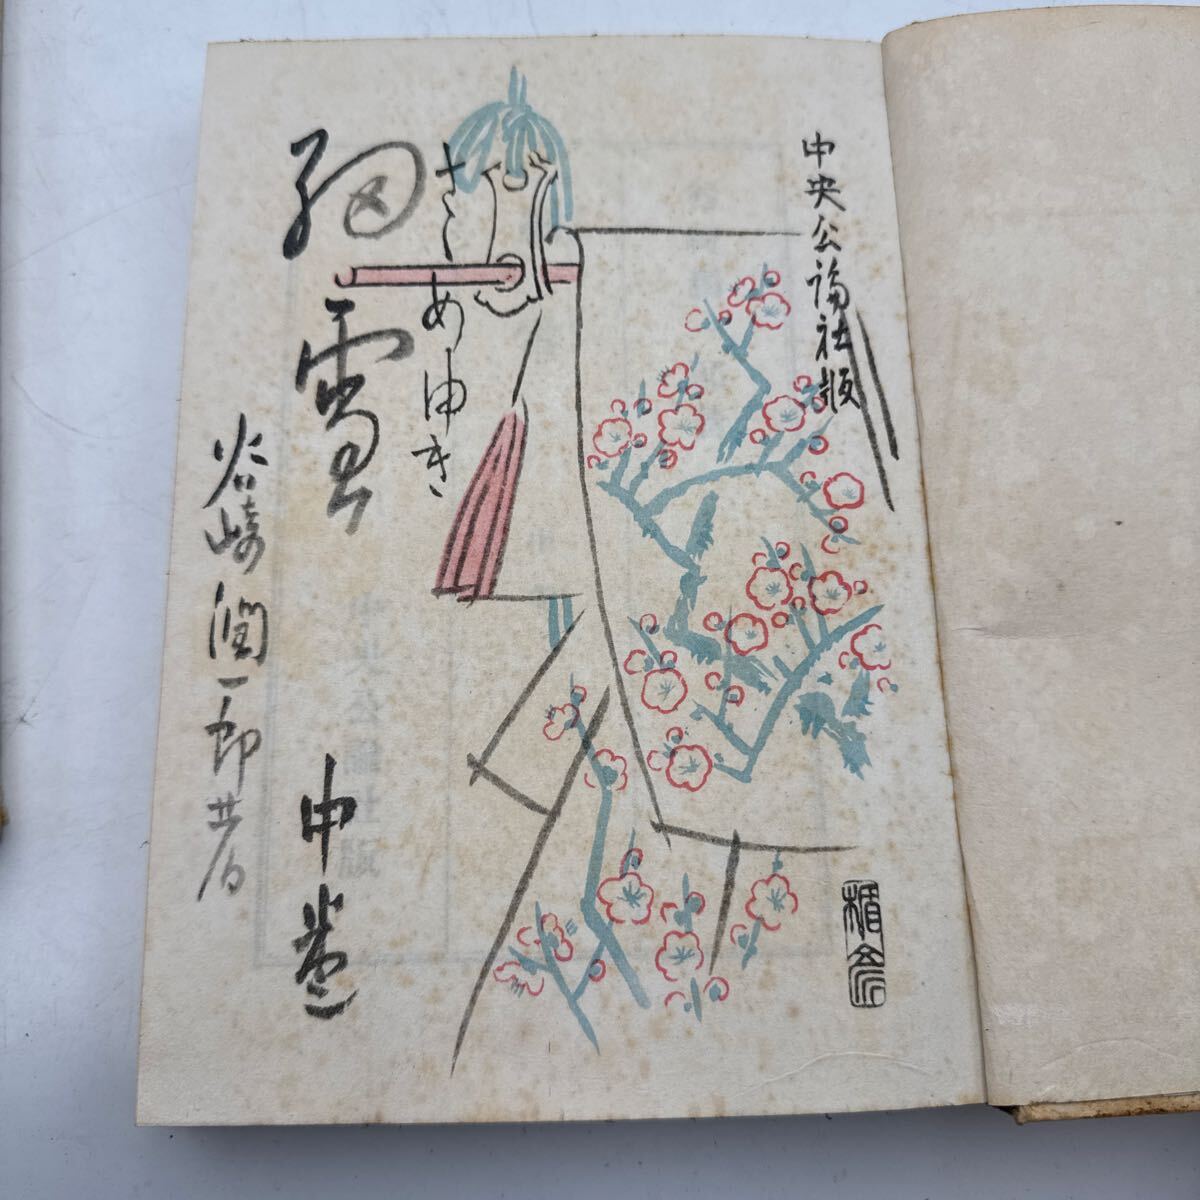 中央公論社版
さゝめゆき
細雪
中巻
谷崎潤一郎著
楯彦